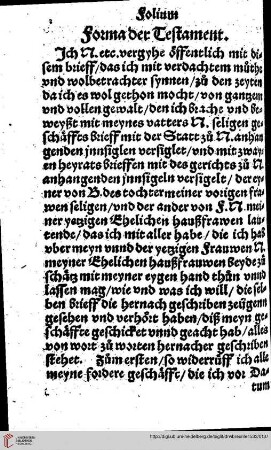 Folium
Forma der Testament.
Ich N. etc. vergyhe öffentlich mit di-
sem brieff/ das ich mit verdachtem můthe
vnd wolbetrachter synnen/ zů den zeyten
da ich es wol gethon mocht/ von gantzem
vnd vollen gewalt/ den ich brache vnd be-
weyßt mit meynes vatters N. seligen ge-
schäfftes brieff mit der Statt zů N. anhan
genden innsiglen versiglet/ vnd mit zway-
en heyrats brieffen mit des gerichts zů N.
anhangenden jnnsigeln versigelt/ der ey-
ner von B. des tochter meiner vorigen fra-
wen seligen/ vnd der ander von F. N. mei-
ner yetzigen Ehelichen haußfrawen lau-
tende/ das ich mit aller habe/ die ich hab
vber meyn vnnd der yetzigen Frauwen N.
meyner Ehelichen haußfrauwen beyde zů
schätz mit meyner eygen hand thůn vnnd
lassen mag/ wie vnd was ich will/ die sel-
ben brieff die hernach geschriben zeügenn
gesehen vnd verhört haben/ diß meyn ge-
schäffte geschicket vnnd geacht hab/ alles
von wort zů worten hernacher geschriben
stehet. Zům ersten/ so widerrůff ich alle
meyne fordere geschäfft/ die ich vor Da-
tum